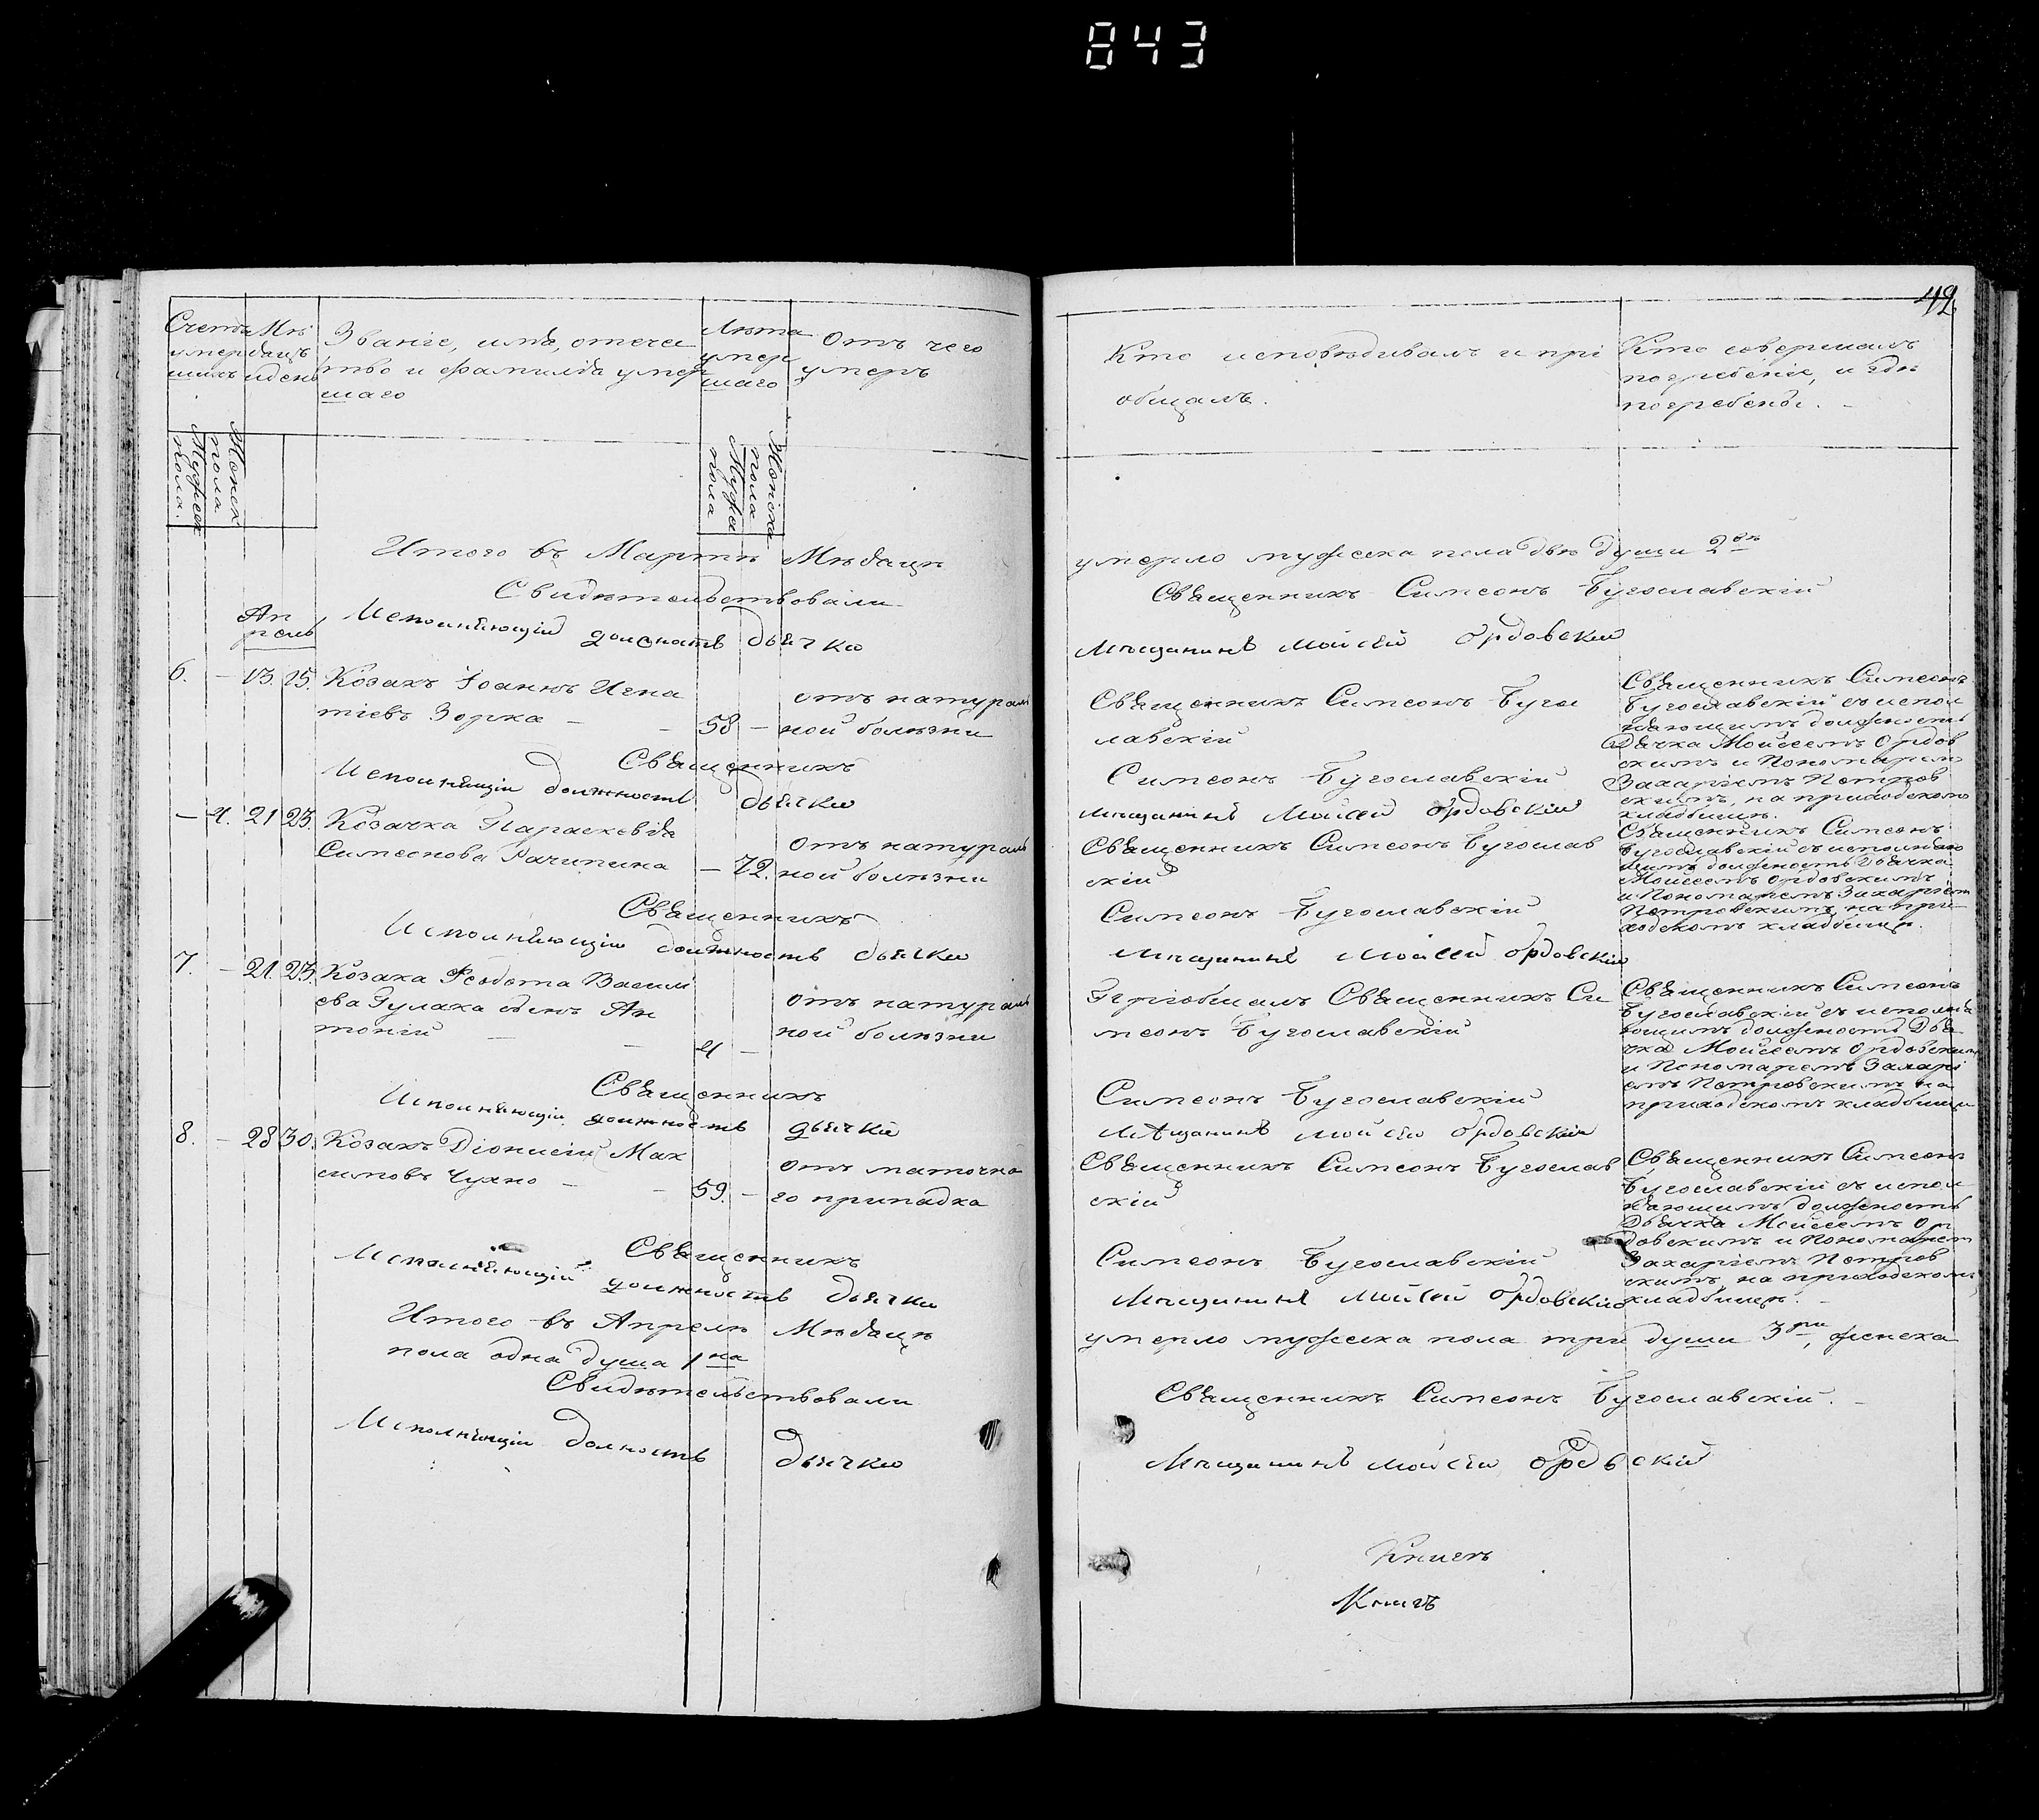 843
42
Счетъ умершихъ
Мѣсяцъ и день
Званіе, имя, отече
ство и фамилія умер
шаго
Лѣта
умер
шаго
Отъ чего
умеръ
Мужеск
пола.
Женск
пола
Мужска
пола
Женска
пола
Кто исповѣдивалъ и прі
общалъ.
Кто совершалъ
погребеніе, и гдѣ
погребены.
Итого въ Мартѣ Мѣсяцѣ
умерло мужеска пола двѣ души 2ѣ
Свидѣтельствовали
Священникъ Симеонъ Бугославскій
Исполняющій должность дьячка
мѣщанинъ Мойсей Ордовскій
Ап
рель
6. – 13. 15. Козакъ Іоаннъ Игна
тіевъ Зорка – – 58 –
отъ натураль
ной болѣзни
Священникъ Симеонъ Буго
лавскій
Священникъ Симеонъ
Бугославскій съ испол
няющимъ должность
Дьячка Мойсеемъ Ордов
скимъ и Пономаремъ
Захаріемъ Петров
скимъ, на приходскомъ
кладбищѣ.
Священникъ
Симеонъ Бугославскій
Исполняющій должность дьячка
мѣщанинъ Мойсей Ордовскій
– 4. 21 23. Козачка Параскевія
Симеонова Рачипина – 72.
отъ натураль
ной болѣзни
Священникъ Симеонъ Бугослав
скій
Священникъ Симеонъ
Бугославскій съ исполняю
щимъ должность Дьячка
Мойсеемъ Ордовскимъ
и Пономаремъ Захаріемъ
Петровскимъ, на при
ходскомъ кладбищѣ.
Священникъ
Симеонъ Бугославскій
Исполняющій должность дьячка
Мѣщанинъ Мойсей Ордовскій
7. – 21. 23. Козака Ѳеодота Васил
ева Гулака сынъ Ан
тоній – – 4 –
отъ натураль
ной болѣзни
Пріобщалъ Священникъ Си
меонъ Бугославскій
Священникъ Симеонъ
Бугославскій съ исполня
ющимъ должность Дья
чка Мойсеемъ Ордовскимъ
и Пономаремъ Захарі
емъ Петровскимъ на
приходскомъ кладбищѣ
Священникъ
Симеонъ Бугославскій
Исполняющій должность дьячка
Мѣщанинъ Мойсей Ордовскій
8. – 28 30. Козакъ Діонисій Мак
симовъ Чухно – – 59. –
отъ маточна
го припадка
Священникъ Симеонъ Бугослав
скій
Священникъ Симеонъ
Бугославскій съ испол
няющимъ должность
Дьячка Мойсеемъ Ор
довскимъ и Пономаремъ
Захаріемъ Петров
скимъ, на приходскомъ
кладбищѣ. –
Священникъ
Симеонъ Бугославскій
Исполняющій должность дьячка
Мѣщанинъ Мойсей Ордовскій
Итого въ Апрелѣ Мѣсяцѣ
умерло мужеска пола три души 3ри, женска
пола одна душа 1на
Свидѣтельствовали
Священникъ Симеонъ Бугославскій. –
Исполняющій должность дьячка
Мѣщанинъ Мойсей Ордовскій